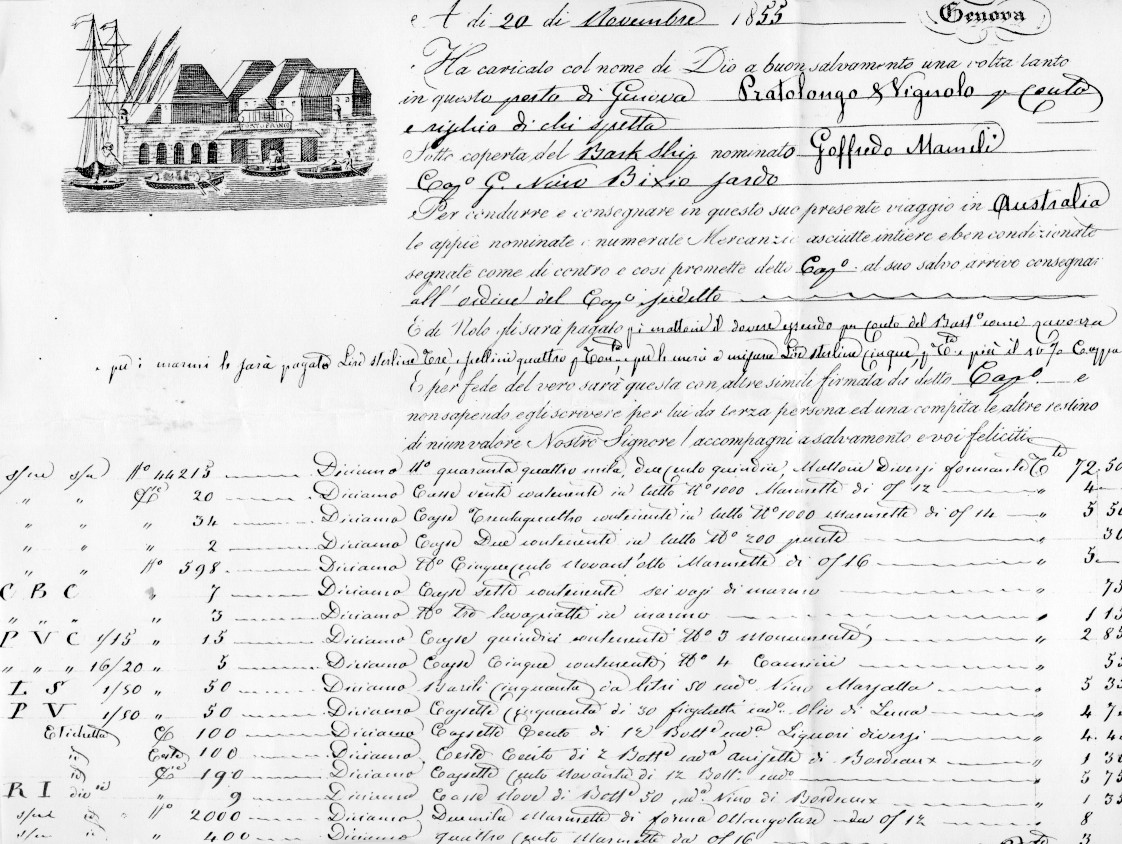 A di 20 di Novembre 1855
Genova
PORTO FRANCO
Ha caricato col nome di Dio a buon salvamento una volta tanto
in questo porto di Genova Pratolongo & Vignolo p Conto
e rischio di chi spetta
Sotto coperta del Bark Ship nominato Goffredo Mameli
Capº G. Nino Bixio Sardo
Per condurre e consegnare in questo suo presente viaggio in Australia
le appiè nominate e numerate Mercanzie asciutte intiere e ben condizionate
segnate come di contro e così promette detto Capº al suo salvo arrivo consegnar
all' ordine del Capº suddetto
E di Nolo gli sarà pagato pi mattoni il dovere essendo per Conto del Bastº come zavorra
pei marmi le sarà pagato Lire sterline Tre, e scellini quattro p Tonª e per le merci a misura Lire sterline Cinque p Tª e più il 10 % Cappa
E per fede del vero sarà questa con altre simili firmata da detto Capº e
non sapendo egli scrivere per lui da terza persona ed una compita le altre restino
di niun valore Nostro Signore l'accompagni a salvamento e voi feliciti
s/m s/n Nº 44215 Diciamo Nº quaranta quattro mila, duecento quindici Mattoni Diversi formanti Tte 72.50
" " Cse 20 Diciamo Casse venti contenente in tutto Nº 1000 Marmette di of 12 " 4
" " " 34 Diciamo Casse Trentaquattro contenente in tutto Nº 1000 Marmette di of 14 " 5 50
" " " 2 Diciamo Casse Due contenente in tutto Nº 200 30
" " Nº 598 Diciamo Nº Cinquecento Novant'otto Marmette di of 16 " 5
C B C " 7 Diciamo Casse sette contenente sei vasi di marmo " 75
" " " " 3 Diciamo Nº tre in marmo " 1 15
P V C 1/15 " 15 Diciamo Casse quindici contenente Nº 3 Monumenti " 2 85
" " " 16/20 " 5 Diciamo Casse Cinque contenenti Nº 4 Camini " 55
L S 1/50 " 50 Diciamo Barili Cinquanta da litri 50 cadº Vino Marsalla " 5 35
P V 1/50 " 50 Diciamo Cassette Cinquanta di 30 fiaschetti cadª Olio di Lucca " 4 7
Etichetta Cse 100 Diciamo Cassette Cento di 12 Bottº cadª Liquori diversi " 4. 4
id Ceste 100 Diciamo Ceste Cento di 2 Bottº cadª anisette di Bordeaux " 1 30
id Cse 190 Diciamo Cassette Cento Novanta di 12 Bottº cadª " 5 75
R I " 9 Diciamo Casse Nove di Bottº 50 cadª Vino di Bordeaux " 1 35
id " Nº 2000 Diciamo Duemila Marmette di forma da of 12 " 8
id " 400 Diciamo quattro cento Marmette da of 16 3